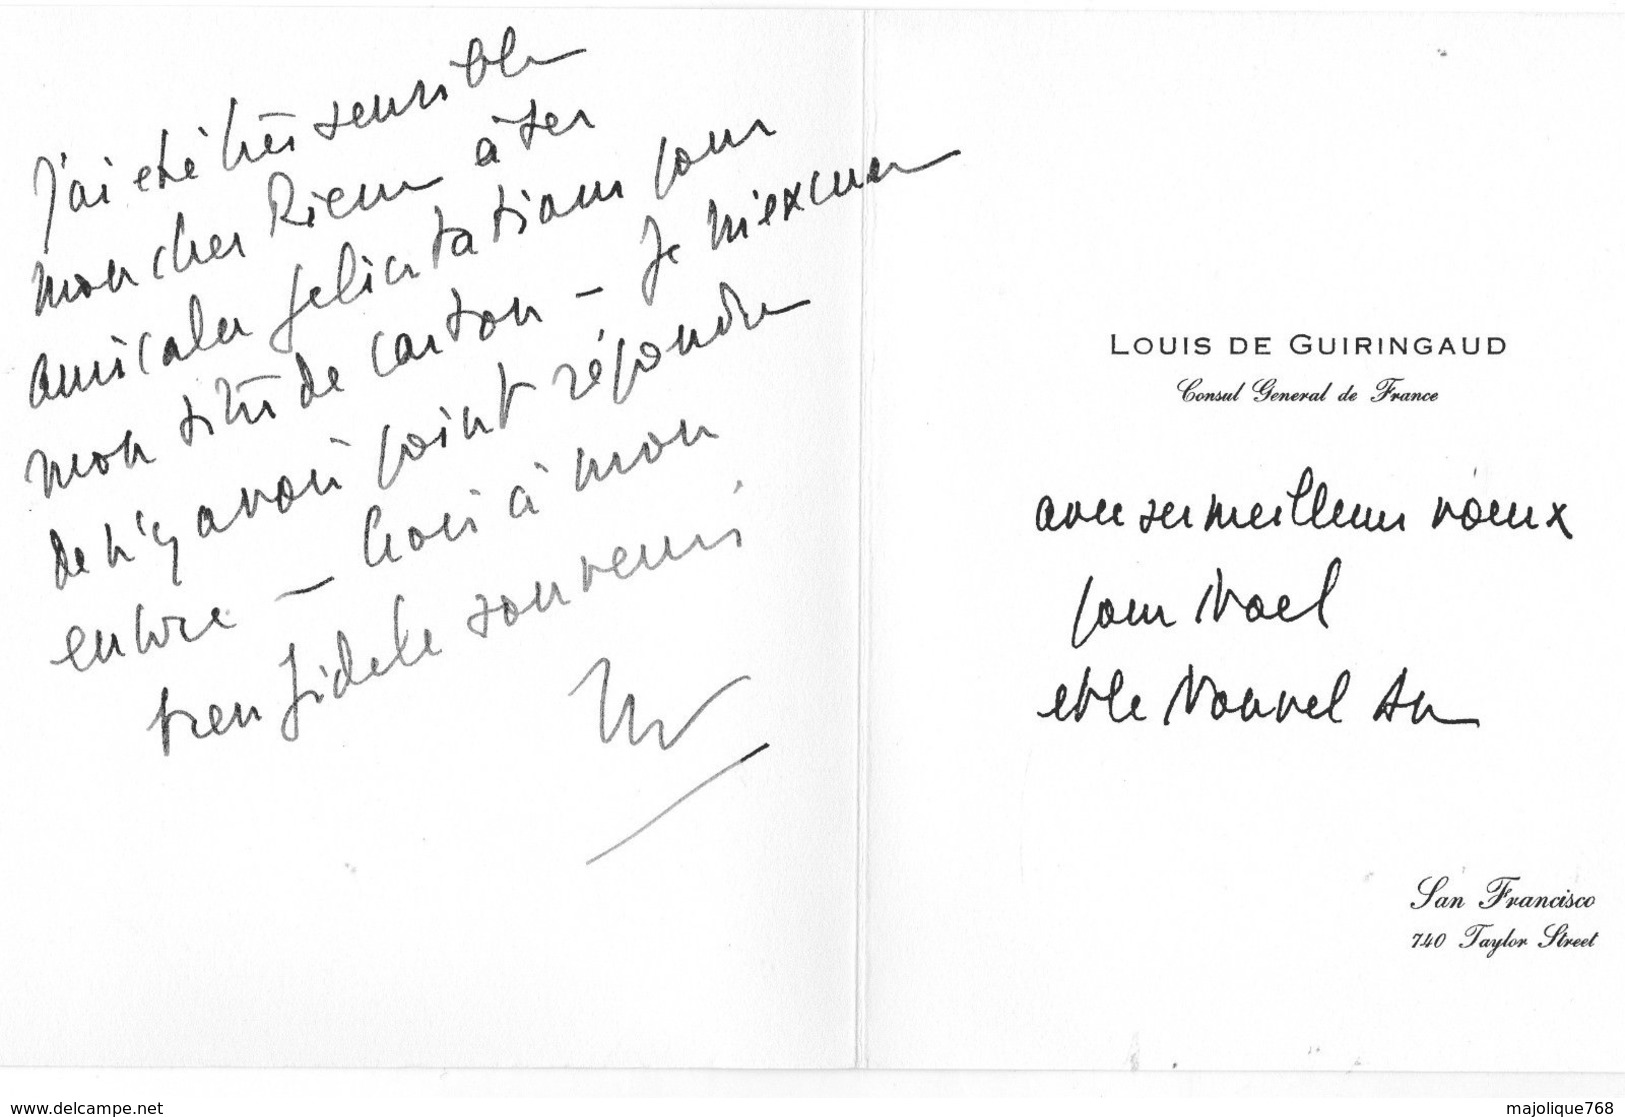 J'ai été très sensible
mon cher Rieur à tes
amicales félicitations pour
mon titre de carton – Je m'excuse
de n'y avoir point répondre
encore – Crois à mon
bien fidèle souvenir
LOUIS DE GUIRINGAUD
Consul General de France
avec ses meilleurs voeux
pour Noel
et le Nouvel An
San Francisco
740 Taylor Street
www.delcampe.net
majolique768